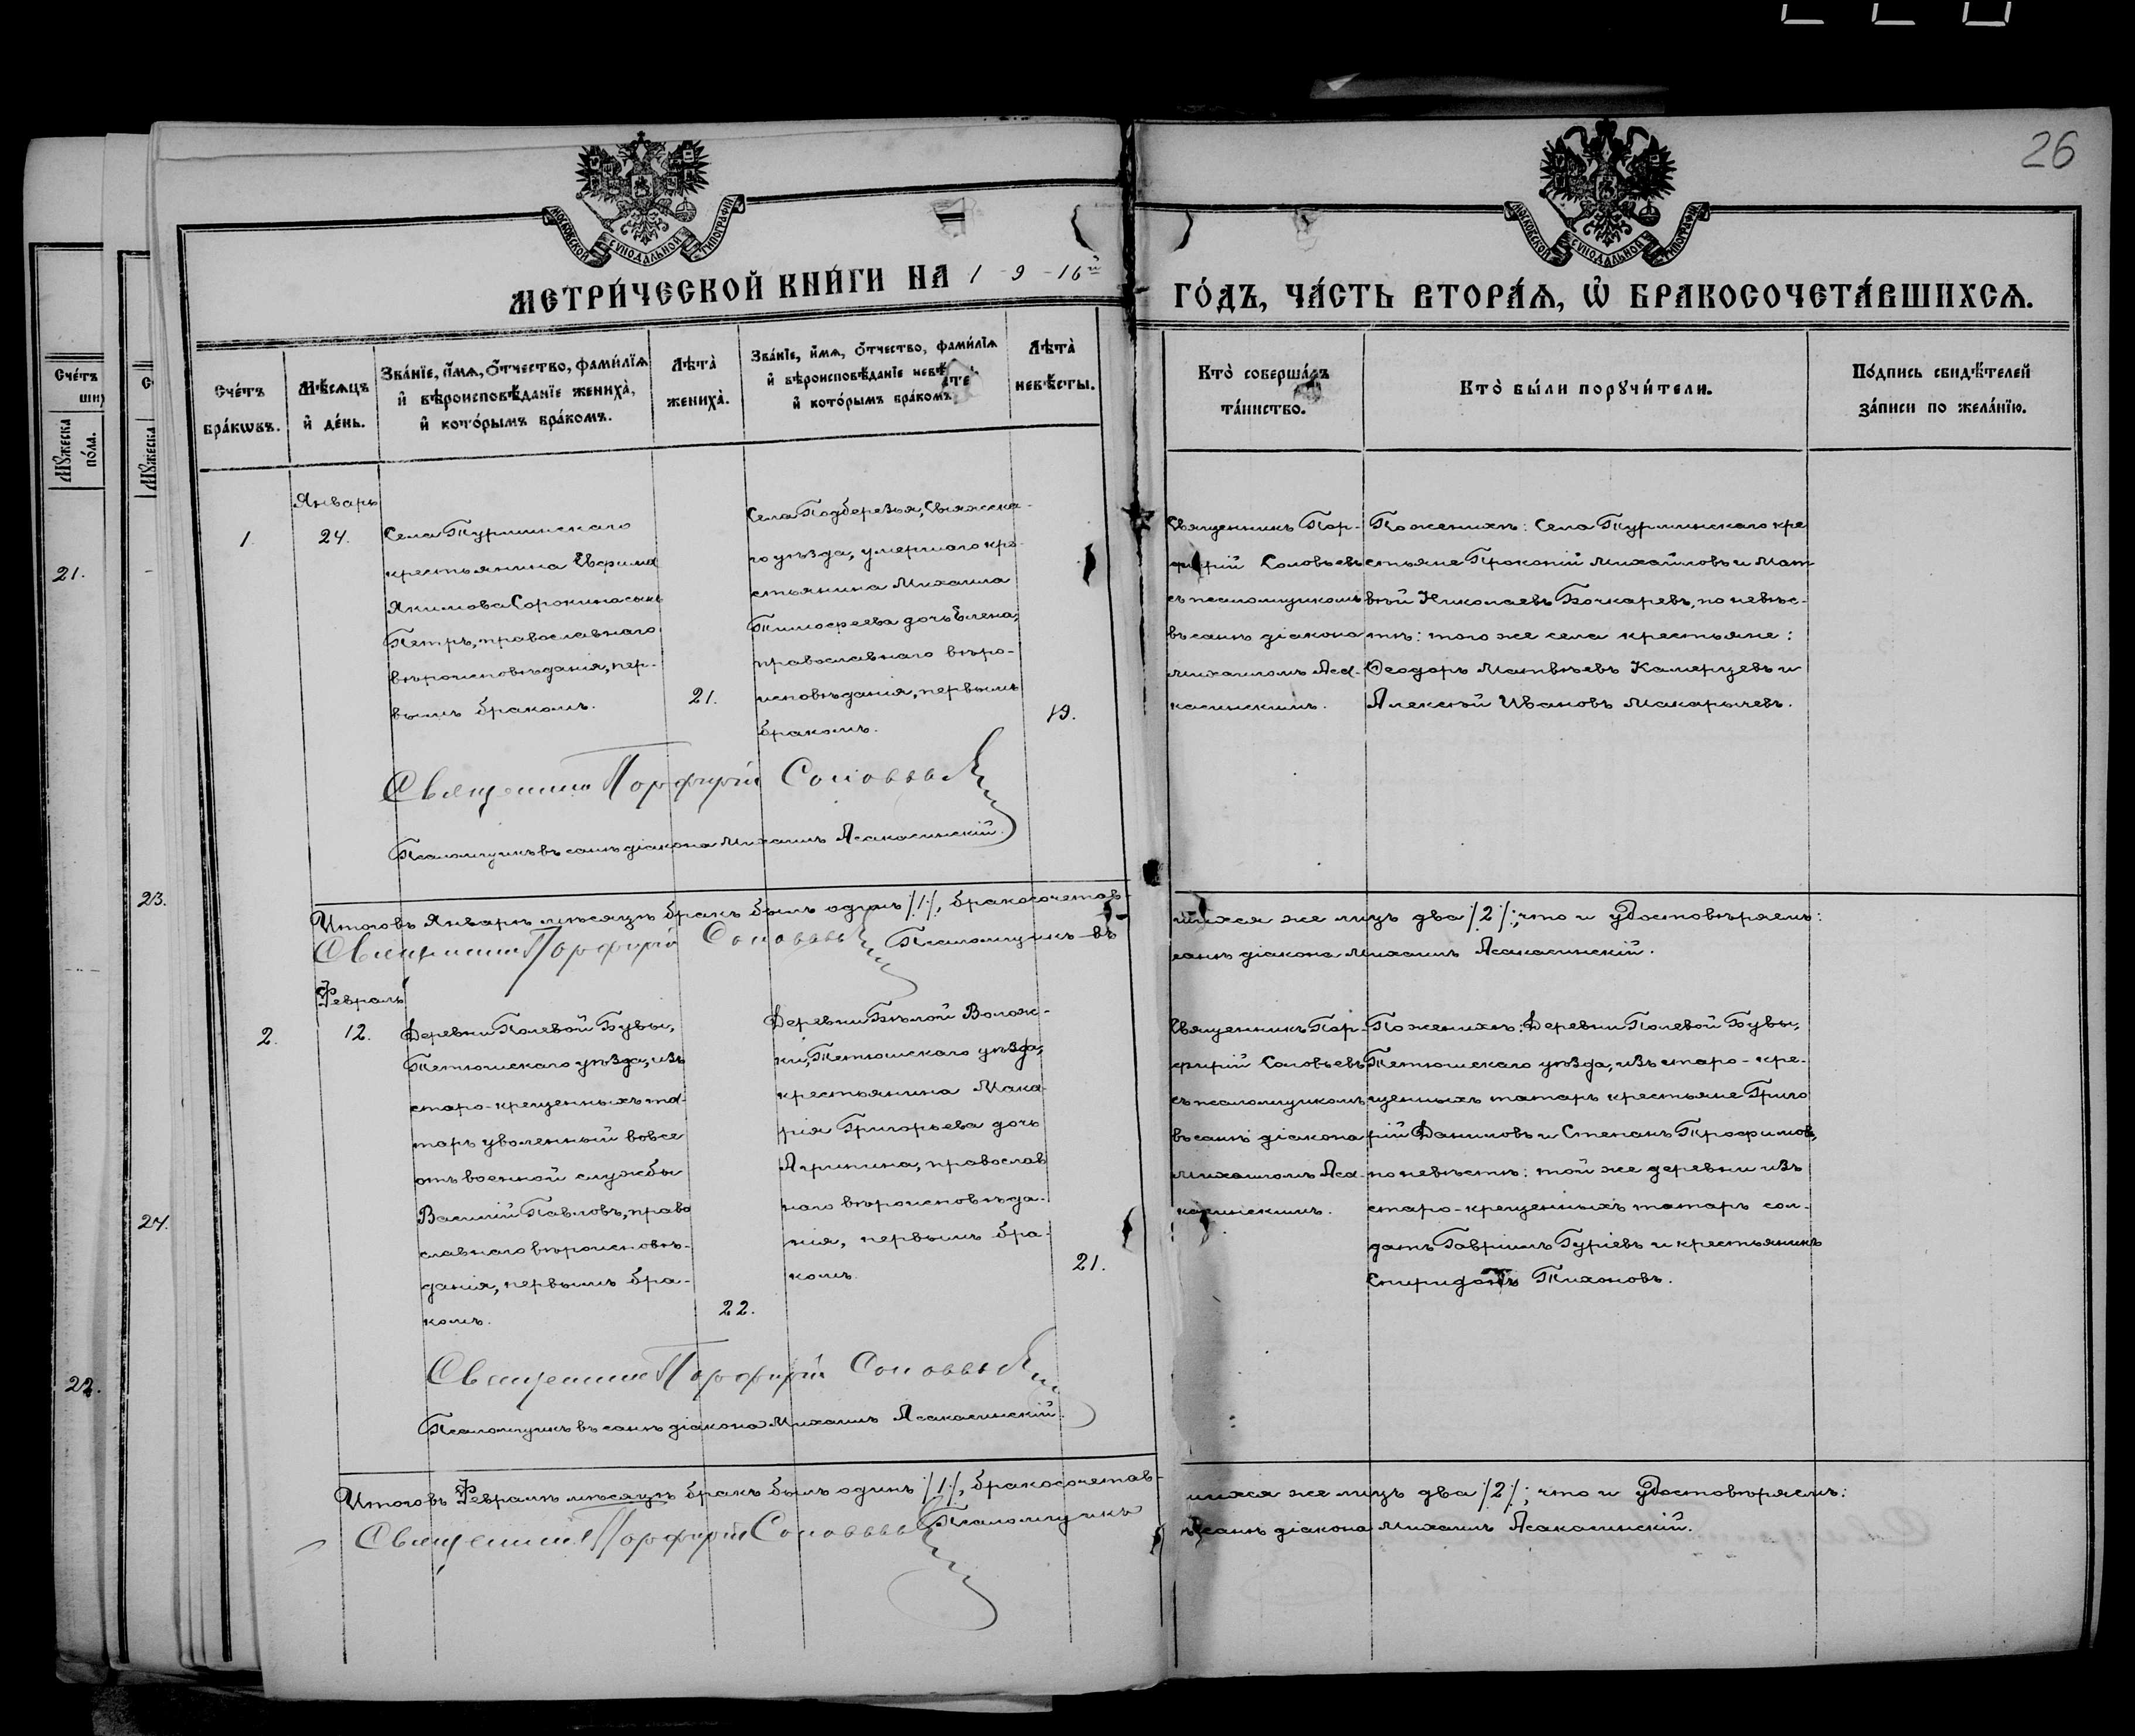 26
МОСКОВСКОЙ СѴНОДАЛЬНОЙ ТИПОГРАФІИ
МОСКОВСКОЙ СѴНОДАЛЬНОЙ ТИПОГРАФІИ
МЕТРИ́ЧЕСКОЙ КНИ́ГИ НА 1-9-16й
ГО́ДЪ, ЧА́СТЬ ВТОРА́Ѧ, Ѡ҆ БРАКОСОЧЕТА́ВШИХСѦ.
Сче́тъ бра́кѡвъ.
Мѣ́сѧцъ и҆ де́нь.
Зва́нїе, и҆́мѧ, о҆́тчество, фами́лїѧ
и҆ вѣроисповѣ́данїе жениха̀,
и҆ кото́рымъ бра́комъ.
Лѣта̀ жениха̀.
Зва́нїе, и҆́мѧ, о҆́тчество, фами́лїѧ
и҆ вѣроисповѣ́данїе невѣ́сты
и҆ кото́рымъ бра́комъ.
Лѣта̀ невѣ́сты.
Кто̀ соверша́лъ та́инство.
Кто̀ бы́ли порꙋчи́тели.
По́дпись свидѣ́телей
за́писи по жела́нїю.
Сче́тъ
Мꙋ́жеска по́ла.
Мꙋ́жеска
21.
22.
23.
24.
1.
Январь
24.
Села Турминскаго
крестьянина Евфима
Якимова Сорокина сынъ
Петръ, православнаго
вѣроисповѣданія, пер-
вымъ бракомъ.
21.
Села Подберезья, Свіяжска-
го уѣзда, умершаго кре-
стьянина Михаила
Тимофеева дочь Елена,
православнаго вѣро-
исповѣданія, первымъ
бракомъ.
19.
Священникъ Пор-
фирій Соловьевъ
съ псаломщикомъ
въ санѣ діакона
Михаиломъ Аса-
касинскимъ.
По женихѣ: Села Турминскаго кре
стьяне Прокопій Михайловъ и Мат
вѣй Николаевъ Бочкаревъ, по невѣс-
тѣ: того же села крестьяне:
Ѳеодоръ Матвѣевъ Камерцевъ и
Алексѣй Ивановъ Макарычевъ.
Священникъ Порфирій Соловьевъ
Псаломщикъ въ санѣ діакона Михаилъ Асакасинскій.
Итого въ Январѣ мѣсяцѣ бракъ былъ одинъ /1/, бракосочетав-
шихся же лицъ два /2/; что и удостовѣряемъ:
Священникъ Порфирій Соловьевъ Псаломщикъ въ
санѣ діакона Михаилъ Асакасинскій.
2.
Февраль
12.
Деревни Полевой Бувы,
Тетюшскаго уѣзда, изъ
старо-крещенныхъ та-
таръ уволенный вовсе
отъ военной службы
Василій Павловъ, право
славнаго вѣроисповѣ-
данія, первымъ бра-
комъ.
22.
Деревни Бѣлой Волож-
ки, Тетюшскаго уѣзда,
крестьянина Мака-
рія Григорьева дочь
Агрипина, православ
наго вѣроисповѣда-
нія, первымъ бра-
комъ.
21.
Священникъ Пор-
фирій Соловьевъ
съ псаломщикомъ
въ санѣ діакона
Михаиломъ Аса-
касинскимъ.
По женихѣ: Деревни Полевой Бувы,
Тетюшскаго уѣзда, изъ старо-кре-
щенныхъ татаръ крестьяне Григо
рій Даниловъ и Степанъ Трофимовъ,
по невѣстѣ: той же деревни изъ
старо-крещенныхъ татаръ сол-
датъ Гавріилъ Гуріевъ и крестьянинъ
Спиридонъ Тихоновъ.
Священникъ Порфирій Соловьевъ
Псаломщикъ въ санѣ діакона Михаилъ Асакасинскій.
Итого въ Февралѣ мѣсяцѣ бракъ былъ одинъ /1/, бракосочетав-
шихся же лицъ два /2/; что и удостовѣряемъ:
Священникъ Порфирій Соловьевъ Псаломщикъ
въ санѣ діакона Михаилъ Асакасинскій.